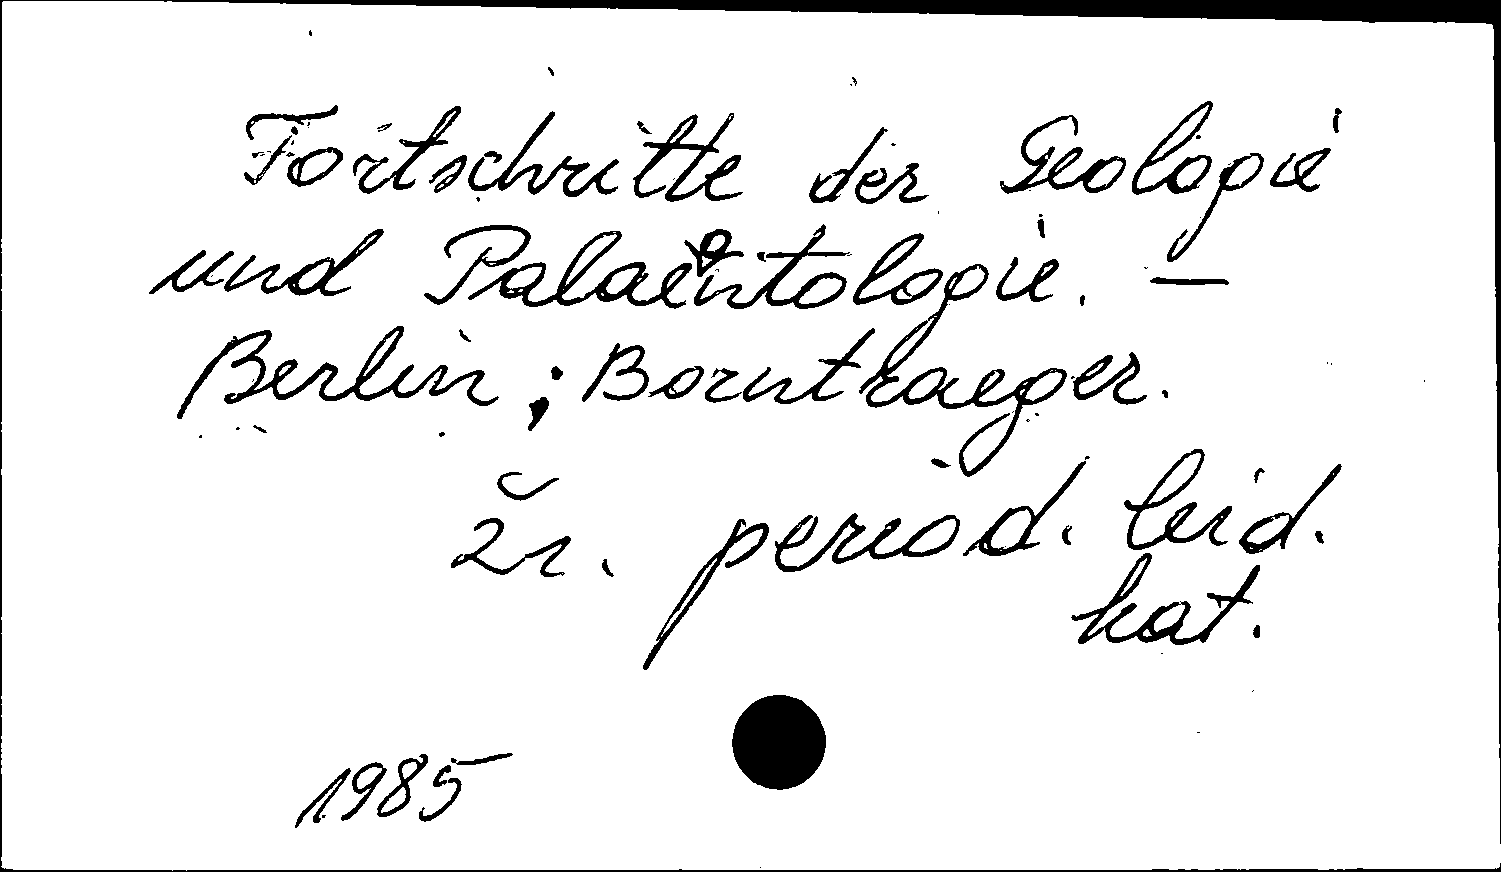 Fortschritte der Geologie
und Palaeontologie. —
Berlin ; Borntraeger.
Žr. period. leid.
kat.
1985